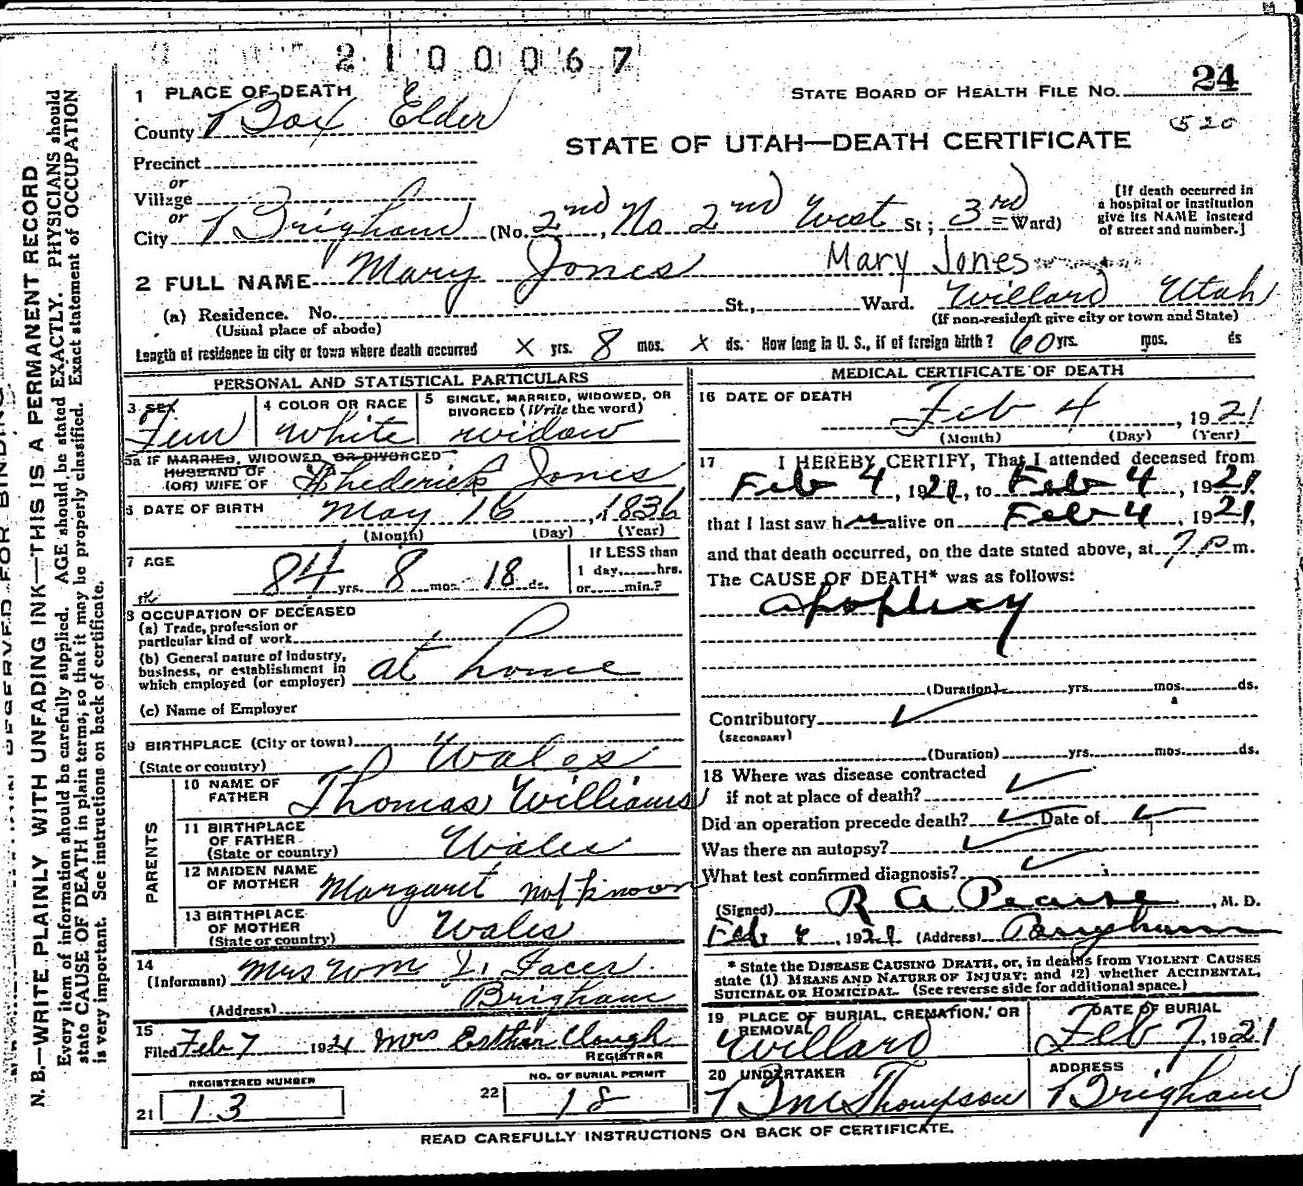 2 1 0 0 0 6 7
1 PLACE OF DEATH
STATE BOARD OF HEALTH FILE NO. 24
County Box Elder
520
STATE OF UTAH—DEATH CERTIFICATE
Precinct
or
Village
or
City Brigham (No. 2nd No 2nd West St; 3rd Ward)
[If death occurred in
a hospital or institution
give its NAME instead
of street and number.]
2 FULL NAME Mary Jones Mary Jones
(a) Residence. No. St., Ward. Willard Utah
(Usual place of abode) (If non-resident give city or town and State)
Length of residence in city or town where death occurred x yrs. 8 mos. x ds. How long in U. S., if of foreign birth? 60 yrs. mos. ds
PERSONAL AND STATISTICAL PARTICULARS
3 SEX
Fem
4 COLOR OR RACE
white
5 SINGLE, MARRIED, WIDOWED, OR
DIVORCED (Write the word)
widow
5a IF MARRIED, WIDOWED, OR DIVORCED
HUSBAND OF
(OR) WIFE OF Jones
6 DATE OF BIRTH May 16, 1836
(Month) (Day) (Year)
7 AGE
84 yrs. 8 mos. 18 ds.
If LESS than
1 day, hrs.
or min.?
8 OCCUPATION OF DECEASED
(a) Trade, profession or
particular kind of work
(b) General nature of industry,
business, or establishment in
which employed (or employer) at home
(c) Name of Employer
9 BIRTHPLACE (City or town)
(State or country) Wales
PARENTS
10 NAME OF
FATHER Thomas Williams
11 BIRTHPLACE
OF FATHER
(State or country) Wales
12 MAIDEN NAME
OF MOTHER Margaret not known
13 BIRTHPLACE
OF MOTHER
(State or country) Wales
14
(Informant) Mrs Wm J. Facer
(Address) Brigham
15
Filed Feb 7 1921 Mrs Esther Clough
REGISTRAR
REGISTERED NUMBER
21 13
NO. OF BURIAL PERMIT
22 18
MEDICAL CERTIFICATE OF DEATH
16 DATE OF DEATH
Feb 4, 1921
(Month) (Day) (Year)
17 I HEREBY CERTIFY, That I attended deceased from
Feb 4, 1921, to Feb 4, 1921
that I last saw h alive on Feb 4, 1921,
and that death occurred, on the date stated above, at 7 P m.
The CAUSE OF DEATH* was as follows:
apoplexy
(Duration) yrs. mos. ds.
Contributory
(SECONDARY)
(Duration) yrs. mos. ds.
18 Where was disease contracted
if not at place of death?
Did an operation precede death? Date of
Was there an autopsy?
What test confirmed diagnosis?
(Signed) R A Pearse, M. D.
Feb 4, 1921 (Address) Brigham
* State the DISEASE CAUSING DEATH, or, in deaths from VIOLENT CAUSES
state (1) MEANS AND NATURE OF INJURY; and (2) whether ACCIDENTAL,
SUICIDAL OR HOMICIDAL. (See reverse side for additional space.)
19 PLACE OF BURIAL, CREMATION, OR
REMOVAL
Willard
DATE OF BURIAL
Feb 7, 1921
20 UNDERTAKER
Thompson
ADDRESS
Brigham
READ CAREFULLY INSTRUCTIONS ON BACK OF CERTIFICATE.
N. B.—WRITE PLAINLY WITH UNFADING INK—THIS IS A PERMANENT RECORD
Every item of information should be carefully supplied. AGE should be stated EXACTLY. PHYSICIANS should
state CAUSE OF DEATH in plain terms, so that it may be properly classified. Exact statement of OCCUPATION
is very important. See instructions on back of certificate.